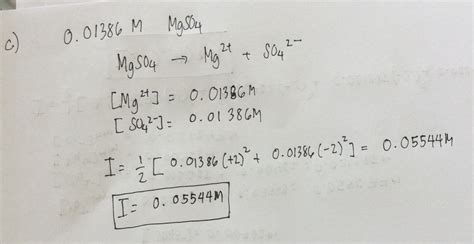 c) 0.01386 M MgSO4
MgSO4 → Mg²⁺ + SO4²⁻
[Mg²⁺] = 0.01386M
[SO4²⁻]= 0.01386M
I = 1/2 [ 0.01386 (+2)² + 0.01386 (-2)² ] = 0.05544M
I = 0.05544M